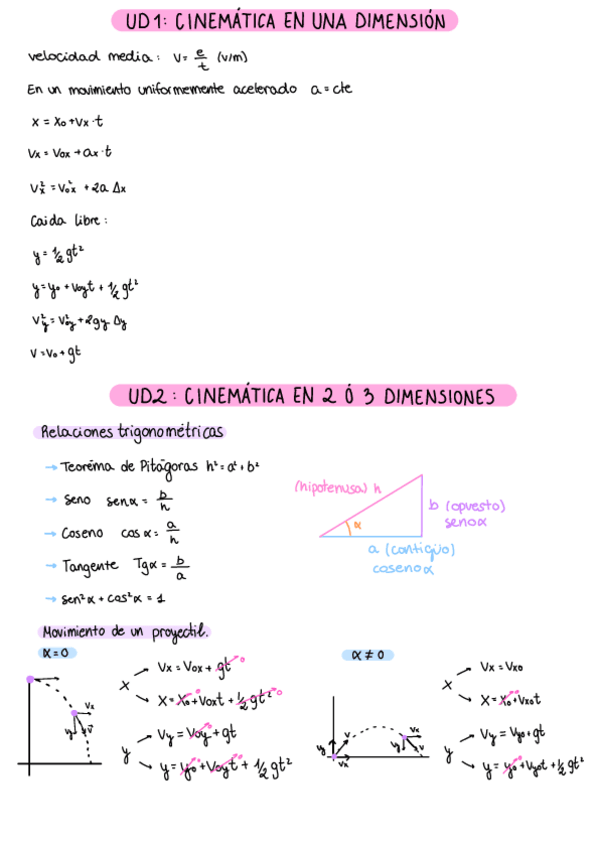 UD1: CINEMÁTICA EN UNA DIMENSIÓN
velocidad media: v = e/t (v/m)
En un movimiento uniformemente acelerado a = cte
x = x₀ + vx·t
Vx = V₀x + ax·t
Vx² = V₀x² + 2a Δx
Caída libre:
y = 1/2 gt²
y = y₀ + v₀yt + 1/2 gt²
Vy² = V₀y² + 2gy Δy
v = v₀ + gt
UD2: CINEMÁTICA EN 2 Ó 3 DIMENSIONES
Relaciones trigonométricas
→ Teorema de Pitágoras h² = a² + b²
→ Seno senα = b/h
→ Coseno cosα = a/h
→ Tangente Tgα = b/a
→ sen²α + cos²α = 1
(hipotenusa) h
α
b (opuesto)
senoα
a (contigüo)
cosenoα
Movimiento de un proyectil.
α = 0
Vx
Vy
V
x
Vx = V₀x + gt 0
x = x₀ 0 + V₀xt + 1/2 gt² 0
y
Vy = V₀y 0 + gt
y = y₀ 0 + V₀yt 0 + 1/2 gt²
α ≠ 0
Vy
V
Vx
Vx
Vy
V
x
Vx = Vx₀
x = x₀ 0 + Vx₀t
y
Vy = Vy₀ + gt
y = y₀ 0 + Vy₀t + 1/2 gt²